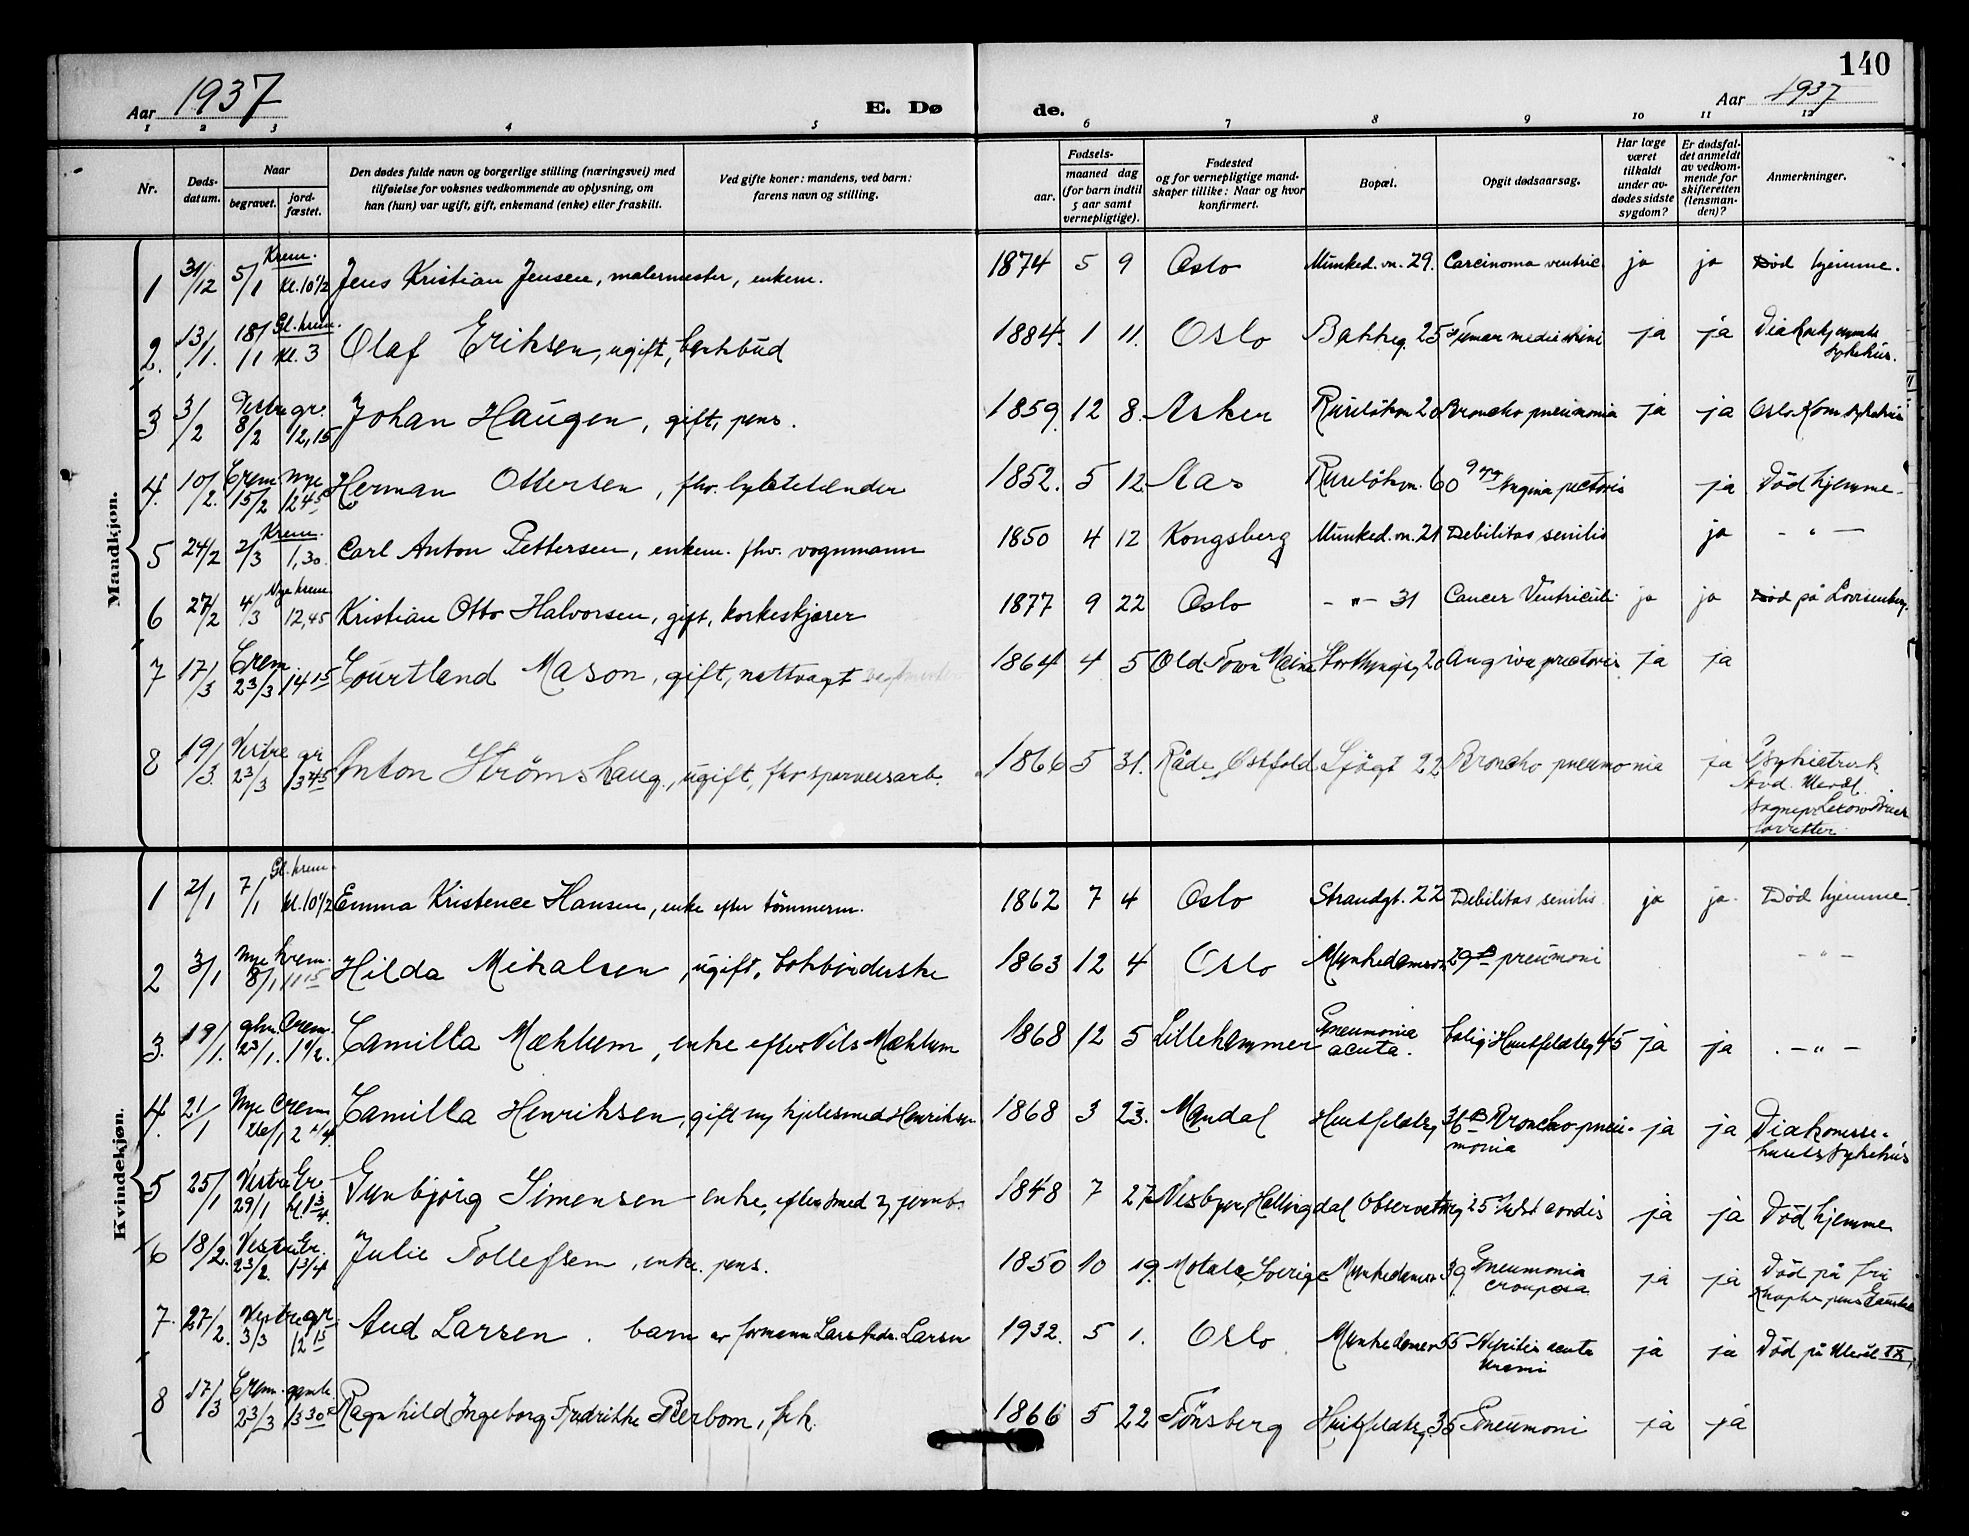 140
Aar 1937 E. Dø de. Aar 1937
1 2 3 4 5 6 7 8 9 10 11 12
Nr.
Døds-
datum.
Naar
begravet.
jord-
fæstet.
Den dødes fulde navn og borgerlige stilling (næringsvei) med
tilføielse for voksnes vedkommende av oplysning, om
han (hun) var ugift, gift, enkemand (enke) eller fraskilt.
Ved gifte koner: mandens, ved barn:
farens navn og stilling.
Fødsels-
aar.
maaned dag
(for barn indtil
5 aar samt
vernepligtige).
Fødested
og for vernepligtige mand-
skaper tillike: Naar og hvor
konfirmert.
Bopæl.
Opgit dødsaarsag.
Har læge
været
tilkaldt
under av-
dødes sidste
sygdom?
Er dødsfal-
det anmeldt
av vedkom-
mende for
skifteretten
(lensman-
den)?
Anmerkninger.
Mandkjøn.
1 31/12 5/1 Krem. kl. 10 1/2 Jens Kristian Jensen, malermester, enkem. 1874 5 9 Oslo Munked.vn. 29. Carcinoma ventric. ja ja Død hjemme.
2. 13/1. 18/1 Gl. krem. kl. 3 Olaf Eriksen, ugift, 1884. 1 11. Oslo Bakkeg. 25 ja ja
3 3/2 Vestre gr. 8/2 12,15 Johan Haugen, gift, pens. 1859. 12 8. Asker Ruseløkvn 20 Broncho pneumonia ja ja Oslo Kom. sykehus
4. 10/2. Crem Nye 15/2 12 45 Herman Ottersen, fhv. 1852. 5 12 Aas Ruseløkvn. 60 Angina pectoris ja Død hjemme.
5 24/2 2/3 Krem. 1,30. Carl Anton Pettersen, enkem. fhv. vognmann 1850 4 12 Kongsberg Munked.vn. 21 Debilitas senilis ja - " -
6 27/2 4/3 Nye krem. 12,45 Kristian Otto Halvorsen, gift, korkeskjærer 1877 9 22 Oslo - " - 31 Cancer Ventriculi ja ja Død på Lovisenberg.
7 17/3 Crem 23/3 14 15 Courtland Mason, gift, nattvagt 1864 4 5 Old Town Maine 20 Angina pectoris ja ja
8 19/3. Vestre gr 23/3 13 45 Anton Strømshaug, ugift, fhv sporveisarb. 1866 5 31. Råde, Østfold Sjøgt 22 Broncho pneumonia ja Psykiatrisk
Avd. Ulevål.
forretter.
Kvindekjøn.
1 2/1 7/1 Gl. krem. kl. 10 1/2 Emma Kristence Hansen, enke efter tømmerm. 1862 7 4 Oslo Strandgt. 22 Debilitas senilis. ja ja. Død hjemme.
2 3/1 Nye krem. 8/1 11 15 Hilda Mikalsen, ugift, bokbinderske 1863 12 4 Oslo Munkedamsv. 29 B pneumoni - " -
3. 19/1. Crem. 23/1. Camilla Mæhlum, enke efter Nils Mæhlum 1868 12 5 Lillehammer Pneumonia
acuta. bolig: Huitfeldtsg 45 ja ja - " -
4. 21/1 Nye Crem 26/1 2 1/4. Camilla Henriksen, gift m/ Henriksen 1868 3 23. Mandal Huitfeldtsg 36 B Broncho pneu-
monia ja ja Diakonisse-
husets sykehus
5 25/1 Vestre Gr. 29/1 kl. 1 3/4. Gunbjørg Simensen enke, efter smed 1848 7 27 Nesbyen, Hallingdal Observatorieg 25 cordis ja ja Død hjemme
6 18/2. Vestre Gr. 23/2. 1 3/4 Julie Tollefsen, enke. pens. 1850 10 19. Motala, Sverige Munkedamsv 39 Pneumonia
crouposa ja ja Død på
7. 27/2. Vestre gr. 3/3 12 15 Aud Larsen. barn av formann Lars Andr. Larsen 1932. 5 1. Oslo Munkedamsv 55 Nefritis acuta
Uremi ja ja Død på Ulevål IX,
8 17/3 Crem. gamle. 23/3 13 30 Ragnhild Ingeborg Fredrikke Peerbom, frk. 1866 5 22 Tönsberg Huitfeldtsg. 35 Pneumoni ja ja